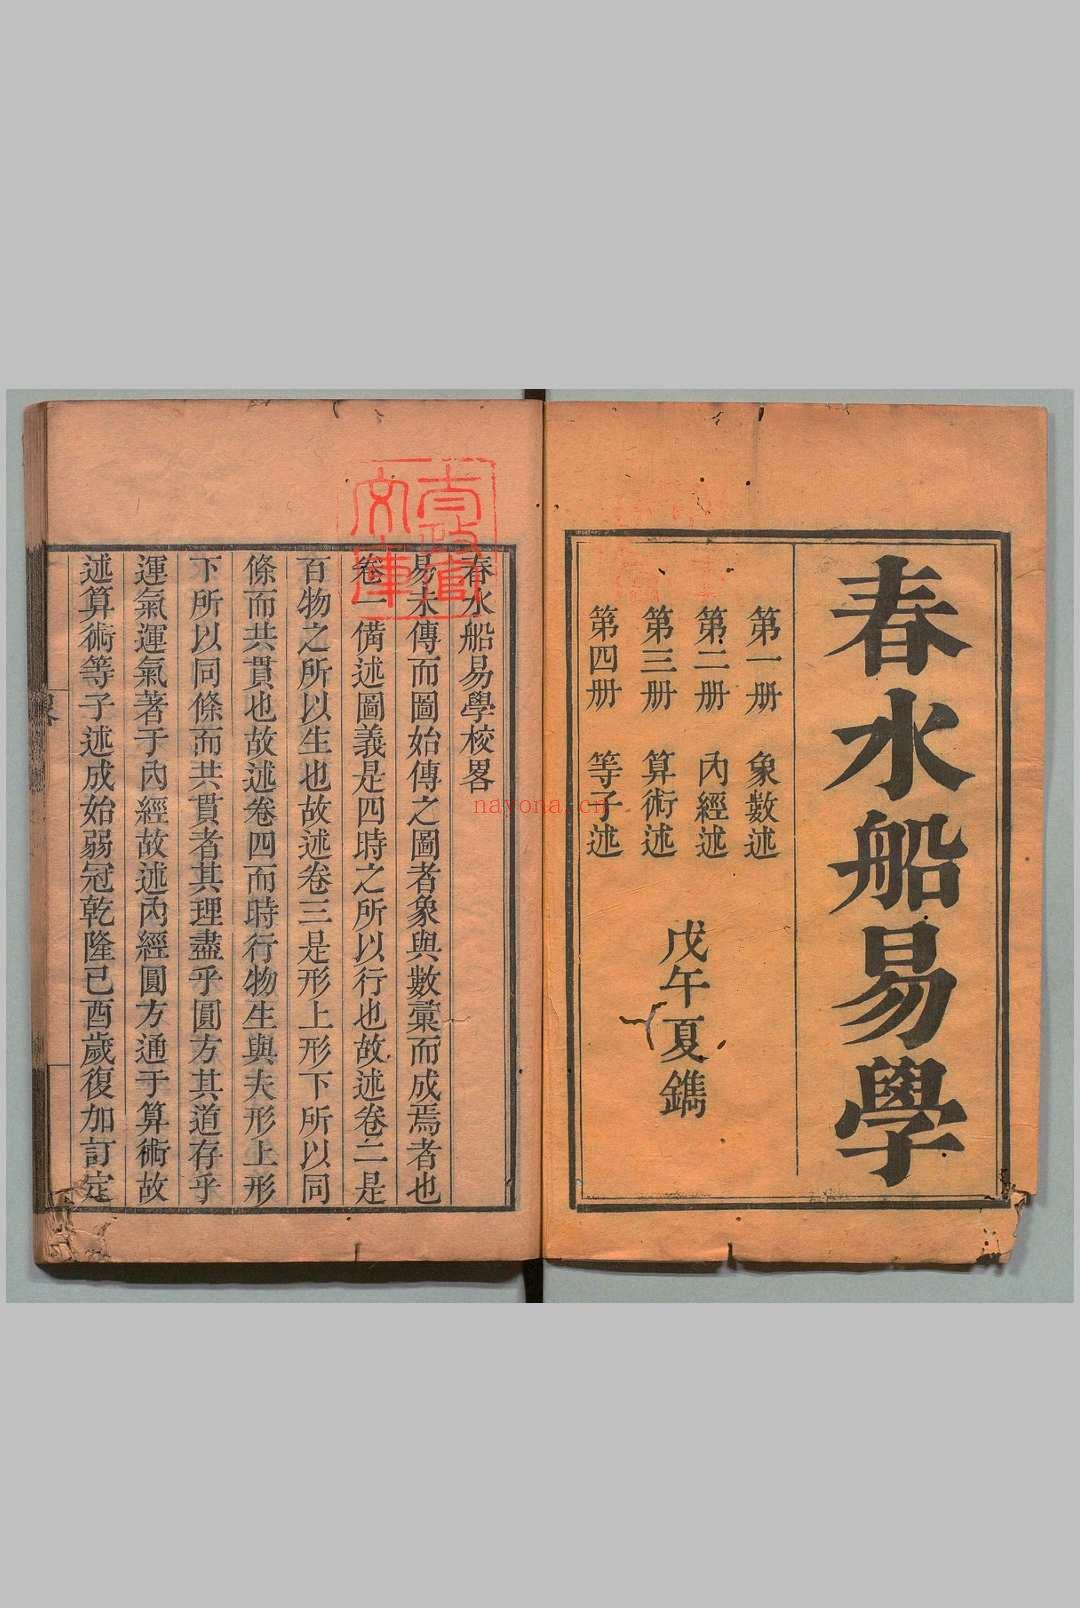 春水船易學
第一册　象數述
第二册　內經述
第三册　算術述
第四册　等子述
戊午夏鐫
太政官文庫
春水船易學校畧
易未傳而圖始傳之圖者象與數彙而成焉者也
卷一備述圖義是四時之所以行也故述卷二是
百物之所以生也故述卷三是形上形下所以同
條而共貫也故述卷四而時行物生與夫形上形
下所以同條而共貫者其理盡乎圓方其道存乎
運氣運氣著于內經故述內經圓方通于算術故
述算術等子述成始弱冠乾隆己酉歲復加訂定
nayona.cn